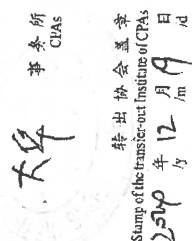 大华
事务所
CPAs
转出协会盖章
Stamp of the transfer-out Institute of CPAs
2020年12月19日
/y /m /d